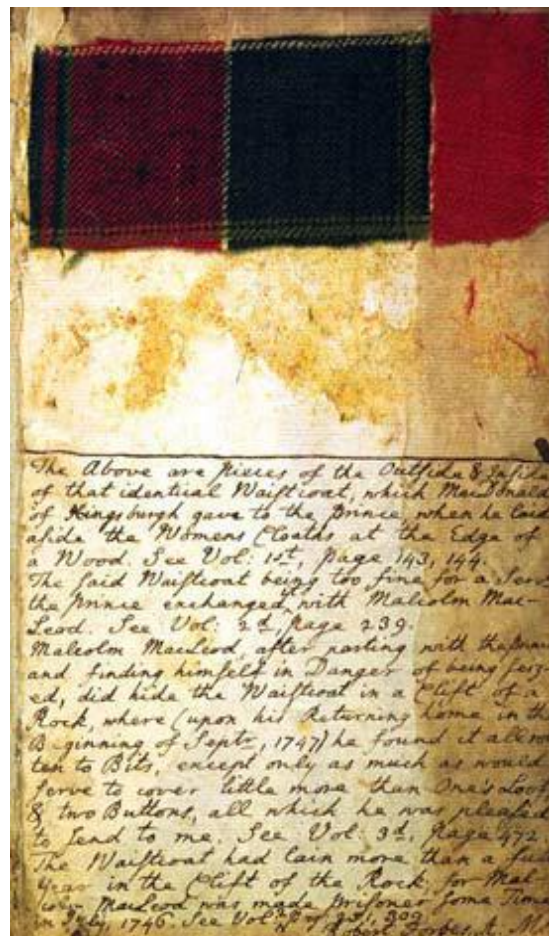 The Above are pieces of the Outside & Inside
of that identical Waistcoat, which MacDonald
of Kingsburgh gave to the Prince, when he laid
aside the Womens Cloaths at the Edge of
a Wood. See Vol: 1st, page 143, 144.
The said Waistcoat being too fine for a Serv
the Prince exchanged with Malcolm Mac-
Leod. See Vol: 2d, page 239.
Malcolm MacLeod, after parting with the Prince
and finding himself in Danger of being seiz-
ed, did hide the Waistcoat in a Clift of a
Rock, where (upon his Returning home in the
Beginning of Septr, 1747) he found it all rot
ten to Bits, except only as much as would
serve to cover little more than One's Loof
& two Buttons, all which he was pleased
to send to me. See Vol: 3d, page 472.
The Waistcoat had lain more than a full
Year in the Clift of the Rock, for Mal-
colm MacLeod was made prisoner some Time
in July, 1746. See Vol
Robert Forbes, A. M.